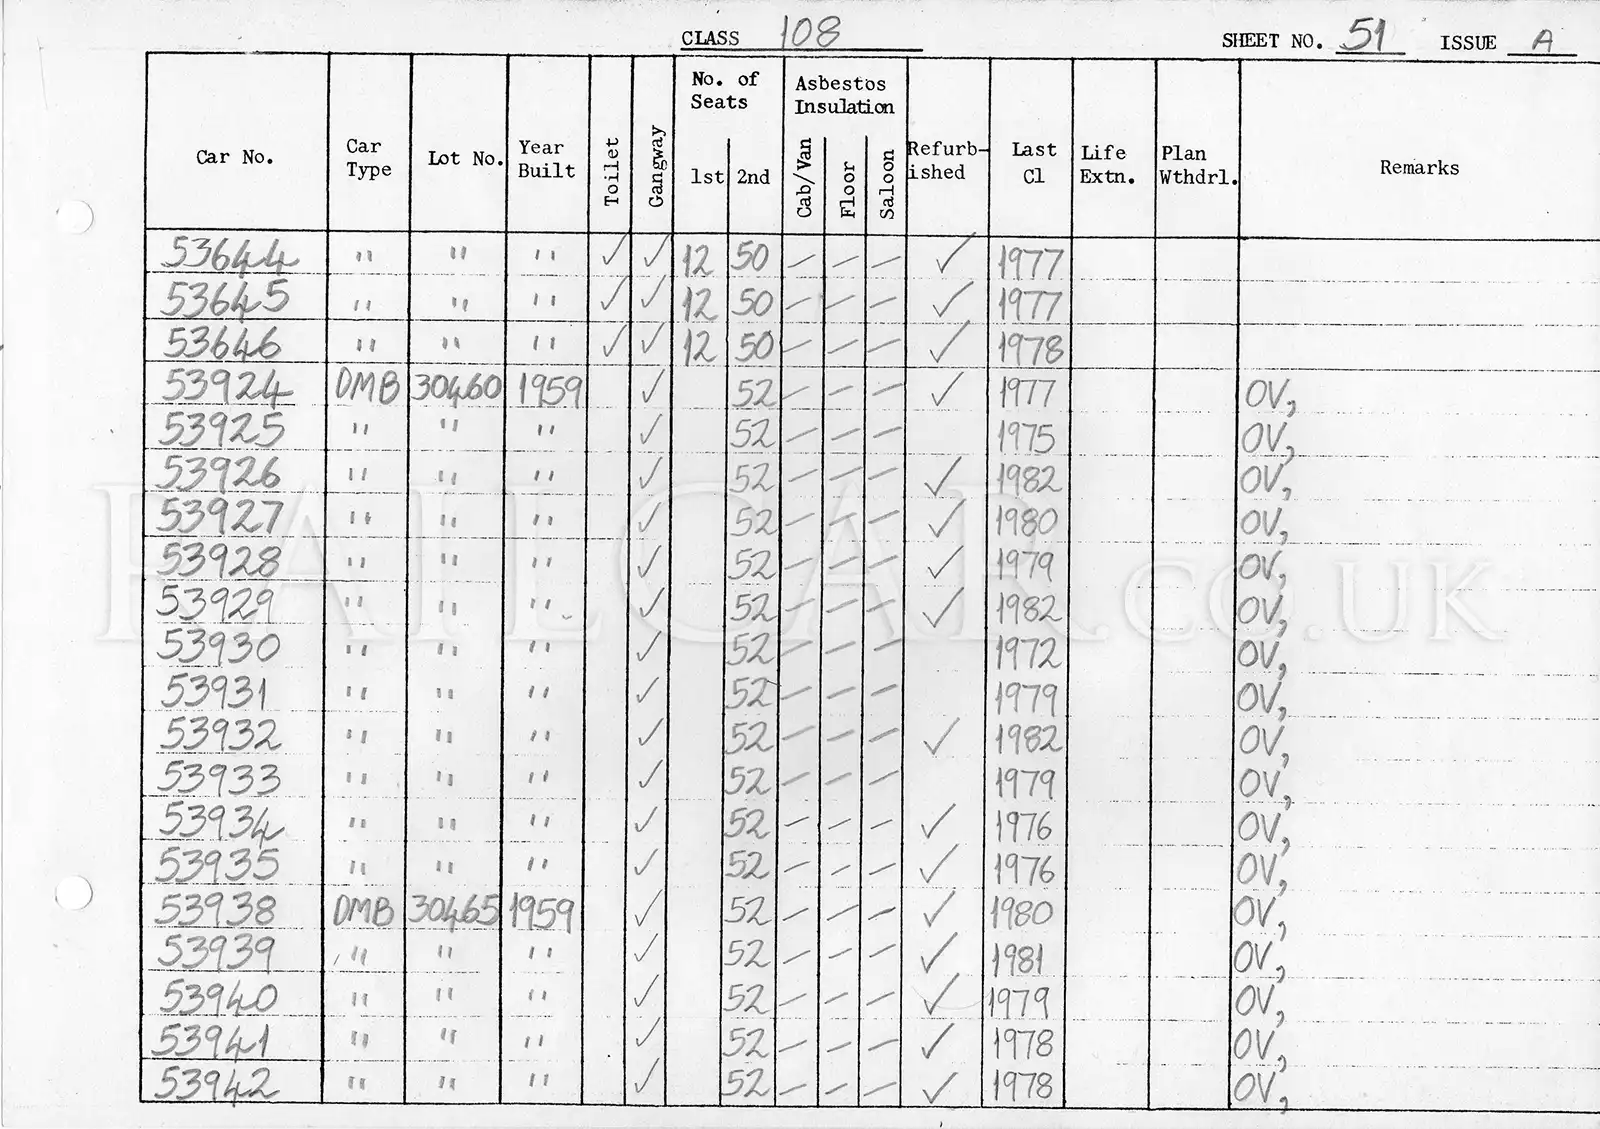 CLASS 108 SHEET NO. 51 ISSUE A
Car No. Car Type Lot No. Year Built Toilet Gangway No. of Seats 1st 2nd Asbestos Insulation Cab/Van Floor Saloon Refurb-ished Last Cl Life Extn. Plan Wthdrl. Remarks
53644 " " " ✓ ✓ 12 50 – – – ✓ 1977
53645 " " " ✓ ✓ 12 50 – – – ✓ 1977
53646 " " " ✓ ✓ 12 50 – – – ✓ 1978
53924 DMB 30460 1959 ✓ 52 – – – ✓ 1977 OV,
53925 " " " ✓ 52 – – – 1975 OV,
53926 " " " ✓ 52 – – – ✓ 1982 OV,
53927 " " " ✓ 52 – – – ✓ 1980 OV,
53928 " " " ✓ 52 – – – ✓ 1979 OV,
53929 " " " ✓ 52 – – – ✓ 1982 OV,
53930 " " " ✓ 52 – – – 1972 OV,
53931 " " " ✓ 52 – – – 1979 OV,
53932 " " " ✓ 52 – – – ✓ 1982 OV,
53933 " " " ✓ 52 – – – 1979 OV,
53934 " " " ✓ 52 – – – ✓ 1976 OV,
53935 " " " ✓ 52 – – – ✓ 1976 OV,
53938 DMB 30465 1959 ✓ 52 – – – ✓ 1980 OV,
53939 " " " ✓ 52 – – – ✓ 1981 OV,
53940 " " " ✓ 52 – – – ✓ 1979 OV,
53941 " " " ✓ 52 – – – ✓ 1978 OV,
53942 " " " ✓ 52 – – – ✓ 1978 OV,
RAILCAR.CO.UK